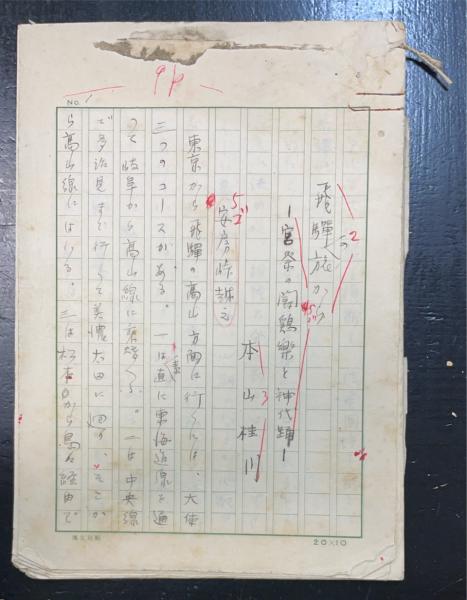 9p
No. 1
飛騨の旅から
2
―宮祭の闘鶏楽と神代踊―
本山桂川
3
5ゴ
安房峠越え
東京から飛騨の高山方面に行くには、大体
三つのコースがある。一は直に東海道線を通
って岐阜から高山線に乗
二は中央線
で多治見まで行って美濃太田に廻り、そこか
ら高山線にはいる。三は松本から島々経由で
20×10